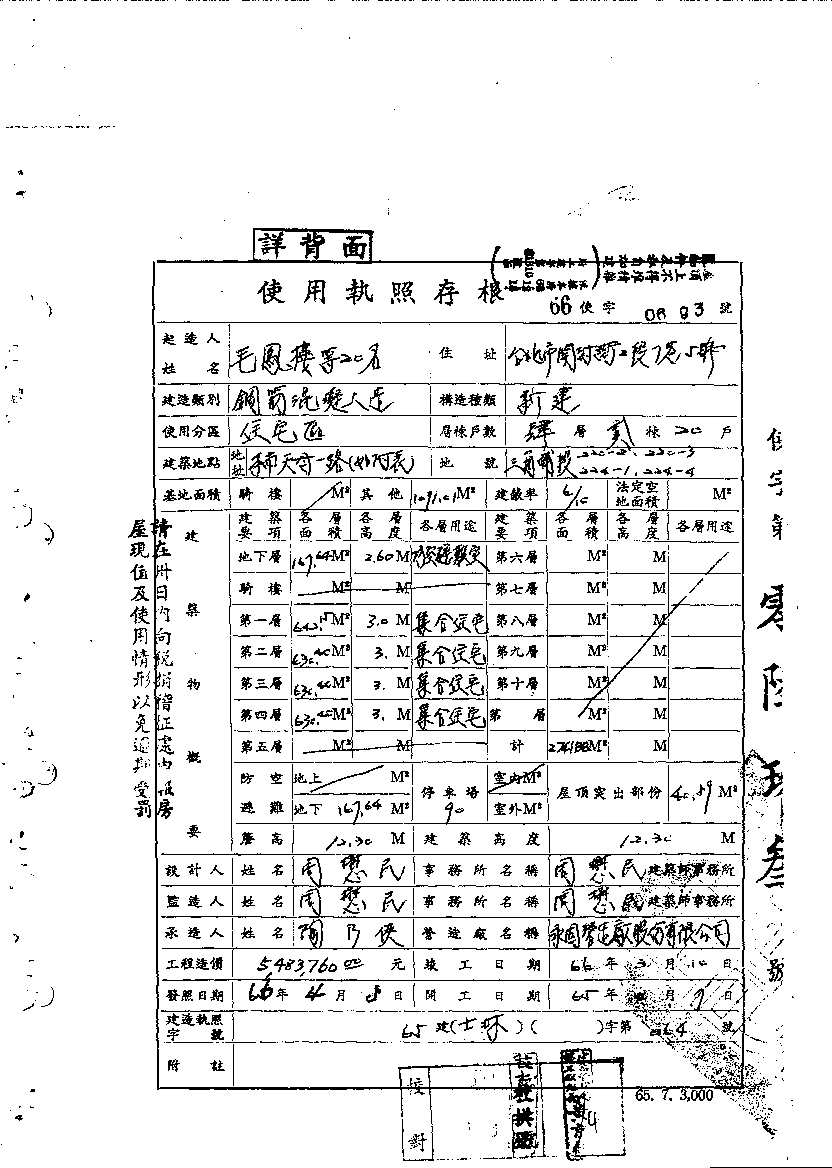 詳背面
使用執照存根
66 使字 0683 號
起造人姓名 毛鳳樓等20名 住址 台北市開封街2段7巷5號
建造類別 鋼筋混凝人造 構造種類 新建
使用分區 住宅區 層棟戶數 肆層 貳棟 20戶
建築地點 地址 士林市天母一路(如附表) 地號 三角埔段 220-2, 220-3
224-1, 224-4
基地面積 騎樓 M² 其他 1091.01M² 建蔽率 6/10 法定空地面積 M²
建築物概要
建築要項 各層面積 各層高度 各層用途 建築要項 各層面積 各層高度 各層用途
地下層 167.64M² 2.60M 防空避難室 第六層 M² M
騎樓 M² M 第七層 M² M
第一層 M² 3.0M 集合住宅 第八層 M² M
第二層 630.40M² 3. M 集合住宅 第九層 M² M
第三層 630.40M² 3. M 集合住宅 第十層 M² M
第四層 630.40M² 3. M 集合住宅 第 層 M² M
第五層 M² M 計 M² M
防空避難 地上 M² 停車場 90 室內M² 屋頂突出部份 40.89M²
地下 167.64 M² 室外M²
簷高 12.30 M 建築高度 12.30 M
設計人 姓名 周懋民 事務所名稱 周懋民建築師事務所
監造人 姓名 周懋民 事務所名稱 周懋民建築師事務所
承造人 姓名 陶乃俠 營造廠名稱 永固營造廠股份有限公司
工程造價 5483,760.00 元 竣工日期 66年3月10日
發照日期 66年4月8日 開工日期 65年 月9日
建造執照字號 65建(士林)( )字第 064 號
附註
校對
65. 7. 3,000
請在卅日內向稅捐稽征處申報房
屋現值及使用情形以免逾期受罰
使字第零陸捌叁號